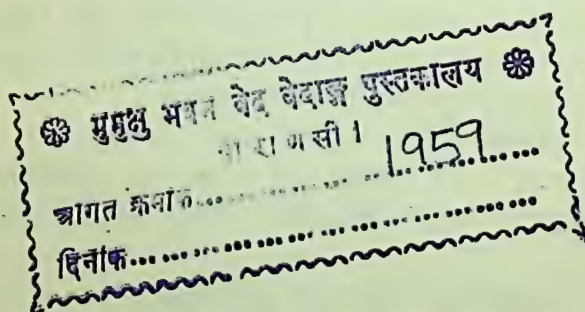 ❀ मुमुक्षु भवन वेद वेदाङ्ग पुस्तकालय ❀
वा रा ण सी ।
आगत क्रमांक........................1959............
दिनांक................................................